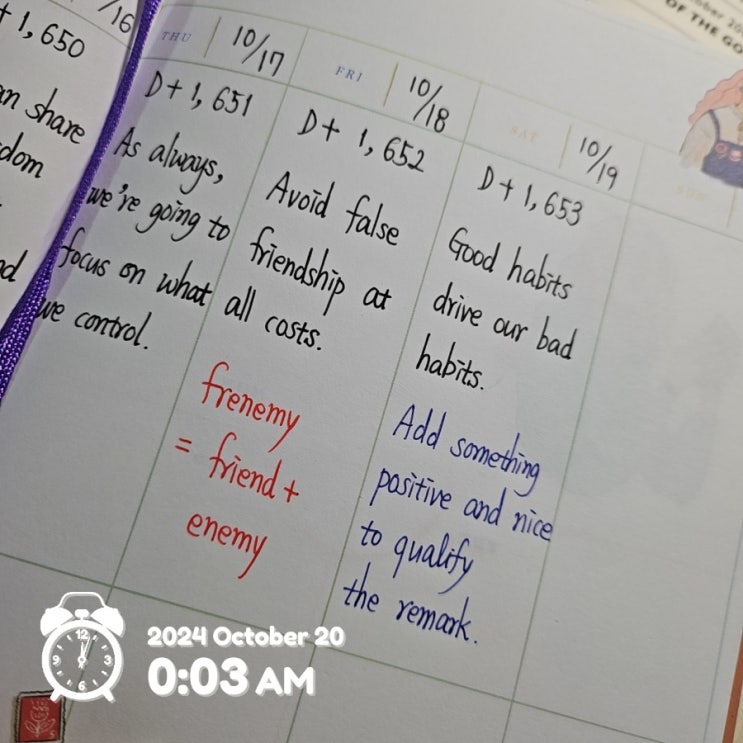 /16
+ 1,650
an share
dom
THU 10/17
D+ 1,651
As always,
we're going to
focus on what
we control.
FRI 10/18
D+ 1,652
Avoid false
friendship at
all costs.
frenemy
= friend +
enemy
SAT 10/19
D+ 1,653
Good habits
drive our bad
habits.
Add something
positive and nice
to qualify
the remark.
SUN
OF THE GO
12
3
6
9
2024 October 20
0:03 AM